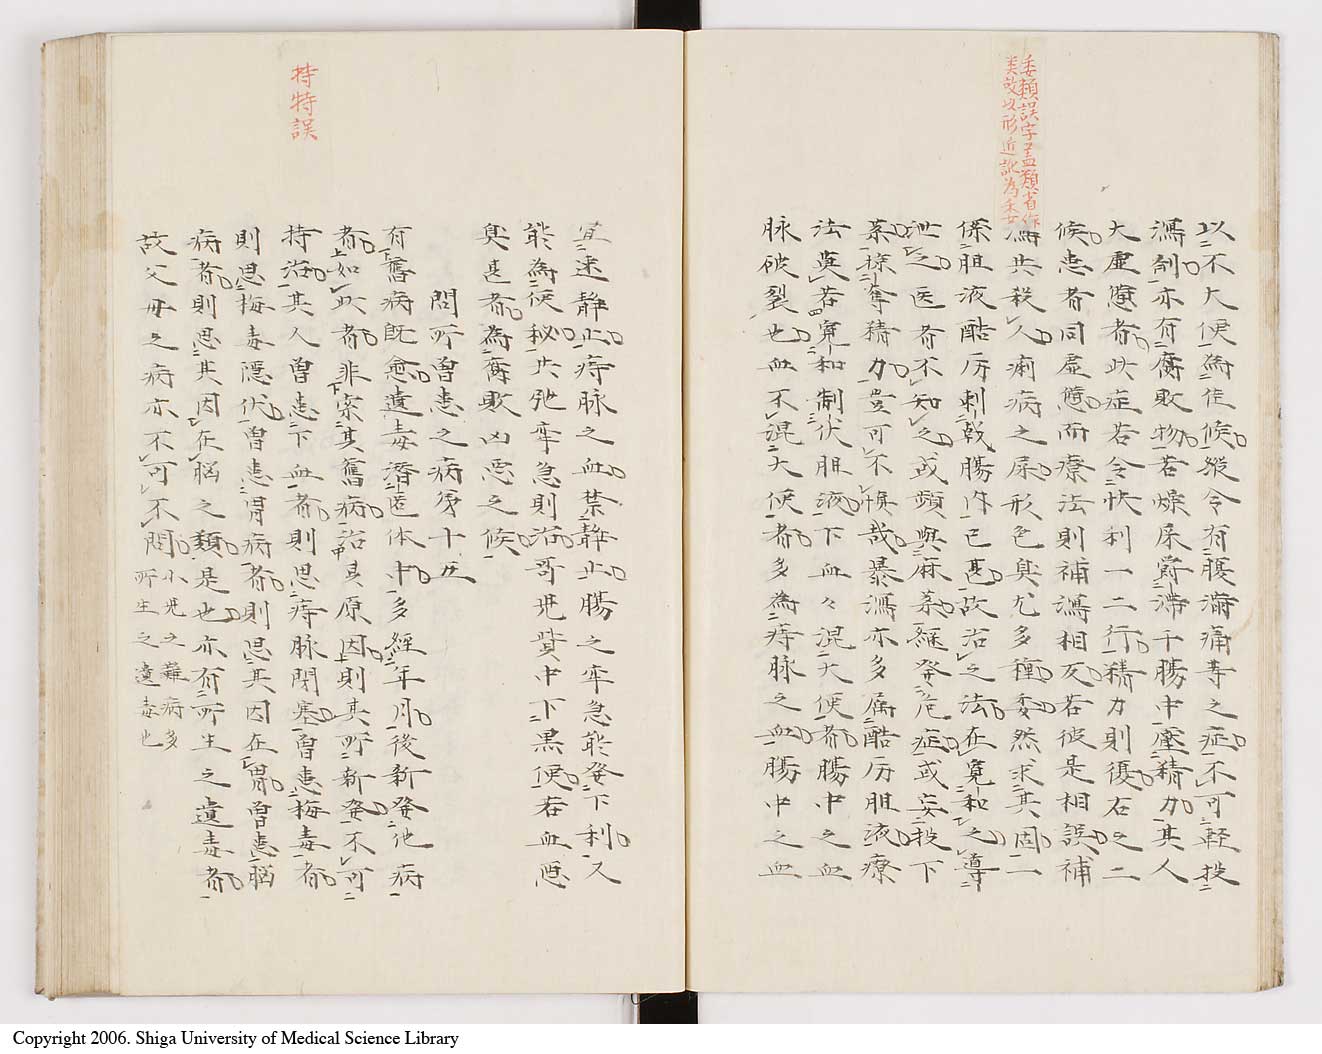 委頼誤字蓋類省作
美故以形近訛為委
以不大便為佳候縱令有腹滿痛等之症不可輕投
瀉劑亦有腐敗物若燥屎欝滯于腸中壓精力其人
大虛憊者此症若令快利一二行精力則復右之二
候患者同虛憊而療法則補瀉相反若彼是相誤補
瀉共殺人痢病之屎形色臭尤多種委然求其因二
係胆液酷厉刺戟腸
已甚故治之法在寛和之導
泄之医者不知之或頻與麻菓羅發危症或妄投下
菓採奪精力豈可不慎哉暴瀉亦多属酷厉胆液療
法莫若寛和制伏胆液下血々混大便者腸中之血
脉破裂也血不混大便者多為痔脉之血腸中之血
持特誤
宜速靜止痔脉之血禁靜止腸之牢急能發下利又
能為便秘共弛牢急則治哥児蕡中下黒便若血悪
臭甚者為腐敗凶悪之候
問所曽患之病第十五
有舊病既愈遺毒潜匿体中多經年月後新發他病
者如此者非索其舊病治其原因則其所新發不可
持治其人曽患下血者則思痔脉閉塞曽患梅毒者
則思梅毒隠伏曽患胃病者則思其因在胃曽患脳
病者則思其因在脳之類是也亦有所生之遺毒者
故父母之病亦不可不問小児之難病多
所生之遺毒也
Copyright 2006. Shiga University of Medical Science Library